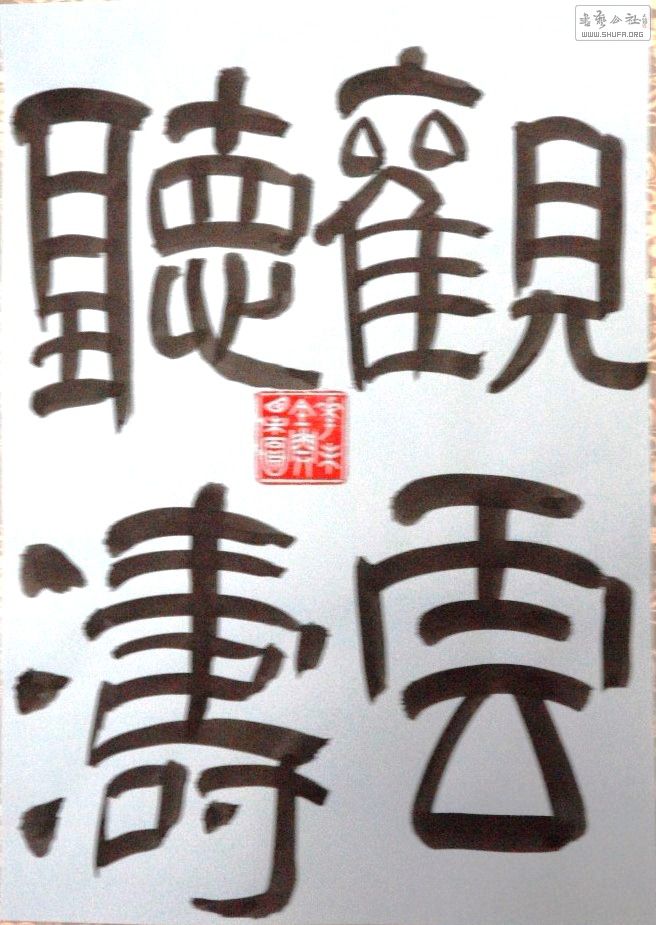 觀雲
聽濤
書藝公社
WWW.SHUFA.ORG